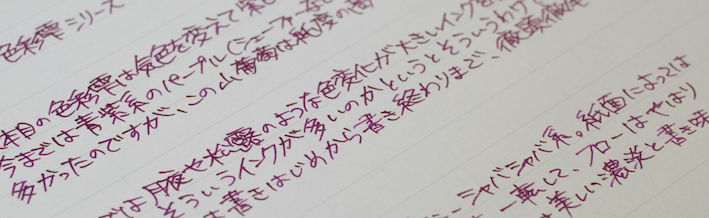 色彩雫シリーズ
本目の色彩雫は気色を変えて紫し
今までは青紫系のパープル(シェーファーなど
多かったのですが、この山葡萄は純度の高
は月夜や松露のような色変化が大きいインクを
そういうインクが多いのかというとそういうわけ
は書きはじめから書き終わりまで、徹頭徹尾
シャバシャバ系。紙面によっては
一転して、フローはやはり
は美しい濃淡と書き味